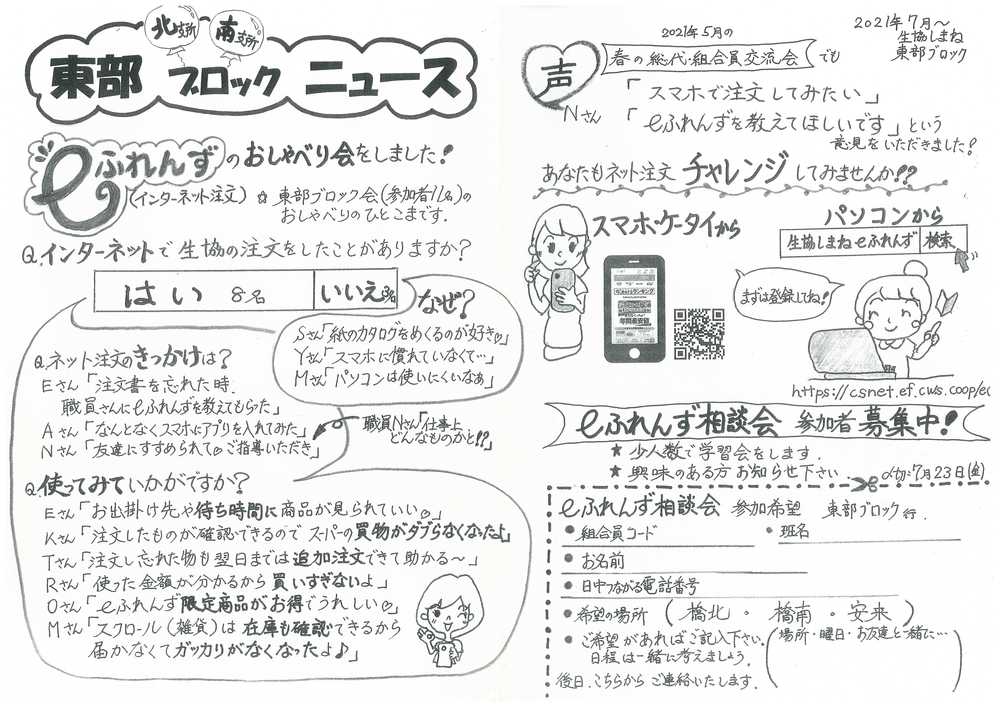 北支所
南支所
東部 ブロック ニュース
eふれんず のおしゃべり会をしました!
(インターネット注文) ☆ 東部ブロック会(参加者11名)の
おしゃべりのひとこまです.
Q.インターネットで生協の注文をしたことがありますか?
はい 8名
いいえ3名
なぜ?
Sさん「紙のカタログをめくるのが好き♡」
Yさん「スマホに慣れていなくて…」
Mさん「パソコンは使いにくいなぁ」
Q.ネット注文のきっかけは?
Eさん「注文書を忘れた時.
職員さんにeふれんずを教えてもらった」
Aさん「なんとなくスマホにアプリを入れてみた」
Nさん「友達にすすめられて♡ご指導いただき」
職員Nさん「仕事上
どんなものかと!?」
Q.使ってみていかがですか?
Eさん「お出掛け先や待ち時間に商品が見られていい♡」
Kさん「注文したものが確認できるので スーパーの買物がダブらなくなったよ」
Tさん「注文し忘れた物も翌日までは追加注文できて助かる〜」
Rさん「使った金額が分かるから買いすぎないよ」
Oさん「eふれんず限定商品がお得でうれしい♡」
Mさん「スクロール(雑貨)は在庫も確認できるから
届かなくてガッカリがなくなったよ♪」
2021年7月〜
生協しまね
東部ブロック
声
2021年5月の
春の総代・組合員交流会 でも
「スマホで注文してみたい」
Nさん 「eふれんずを教えてほしいです」という
意見をいただきました!
あなたもネット注文 チャレンジしてみませんか!?
スマホ・ケータイから
パソコンから
生協しまねeふれんず 検索
まずは登録してね!
年間最安値
https://csnet.ef.cws.coop/ec
eふれんず相談会 参加者募集中!
★ 少人数で学習会をします.
★ 興味のある方お知らせ下さい
〆切:7月23日(金)
eふれんず相談会 参加希望 東部ブロック行.
● 組合員コード
● 班名
● お名前
● 日中つながる電話番号
● 希望の場所 (橋北・橋南・安来)
● ご希望があればご記入下さい.
日程は一緒に考えましょう.
(場所・曜日・お友達と一緒に…
後日.こちらからご連絡いたします.